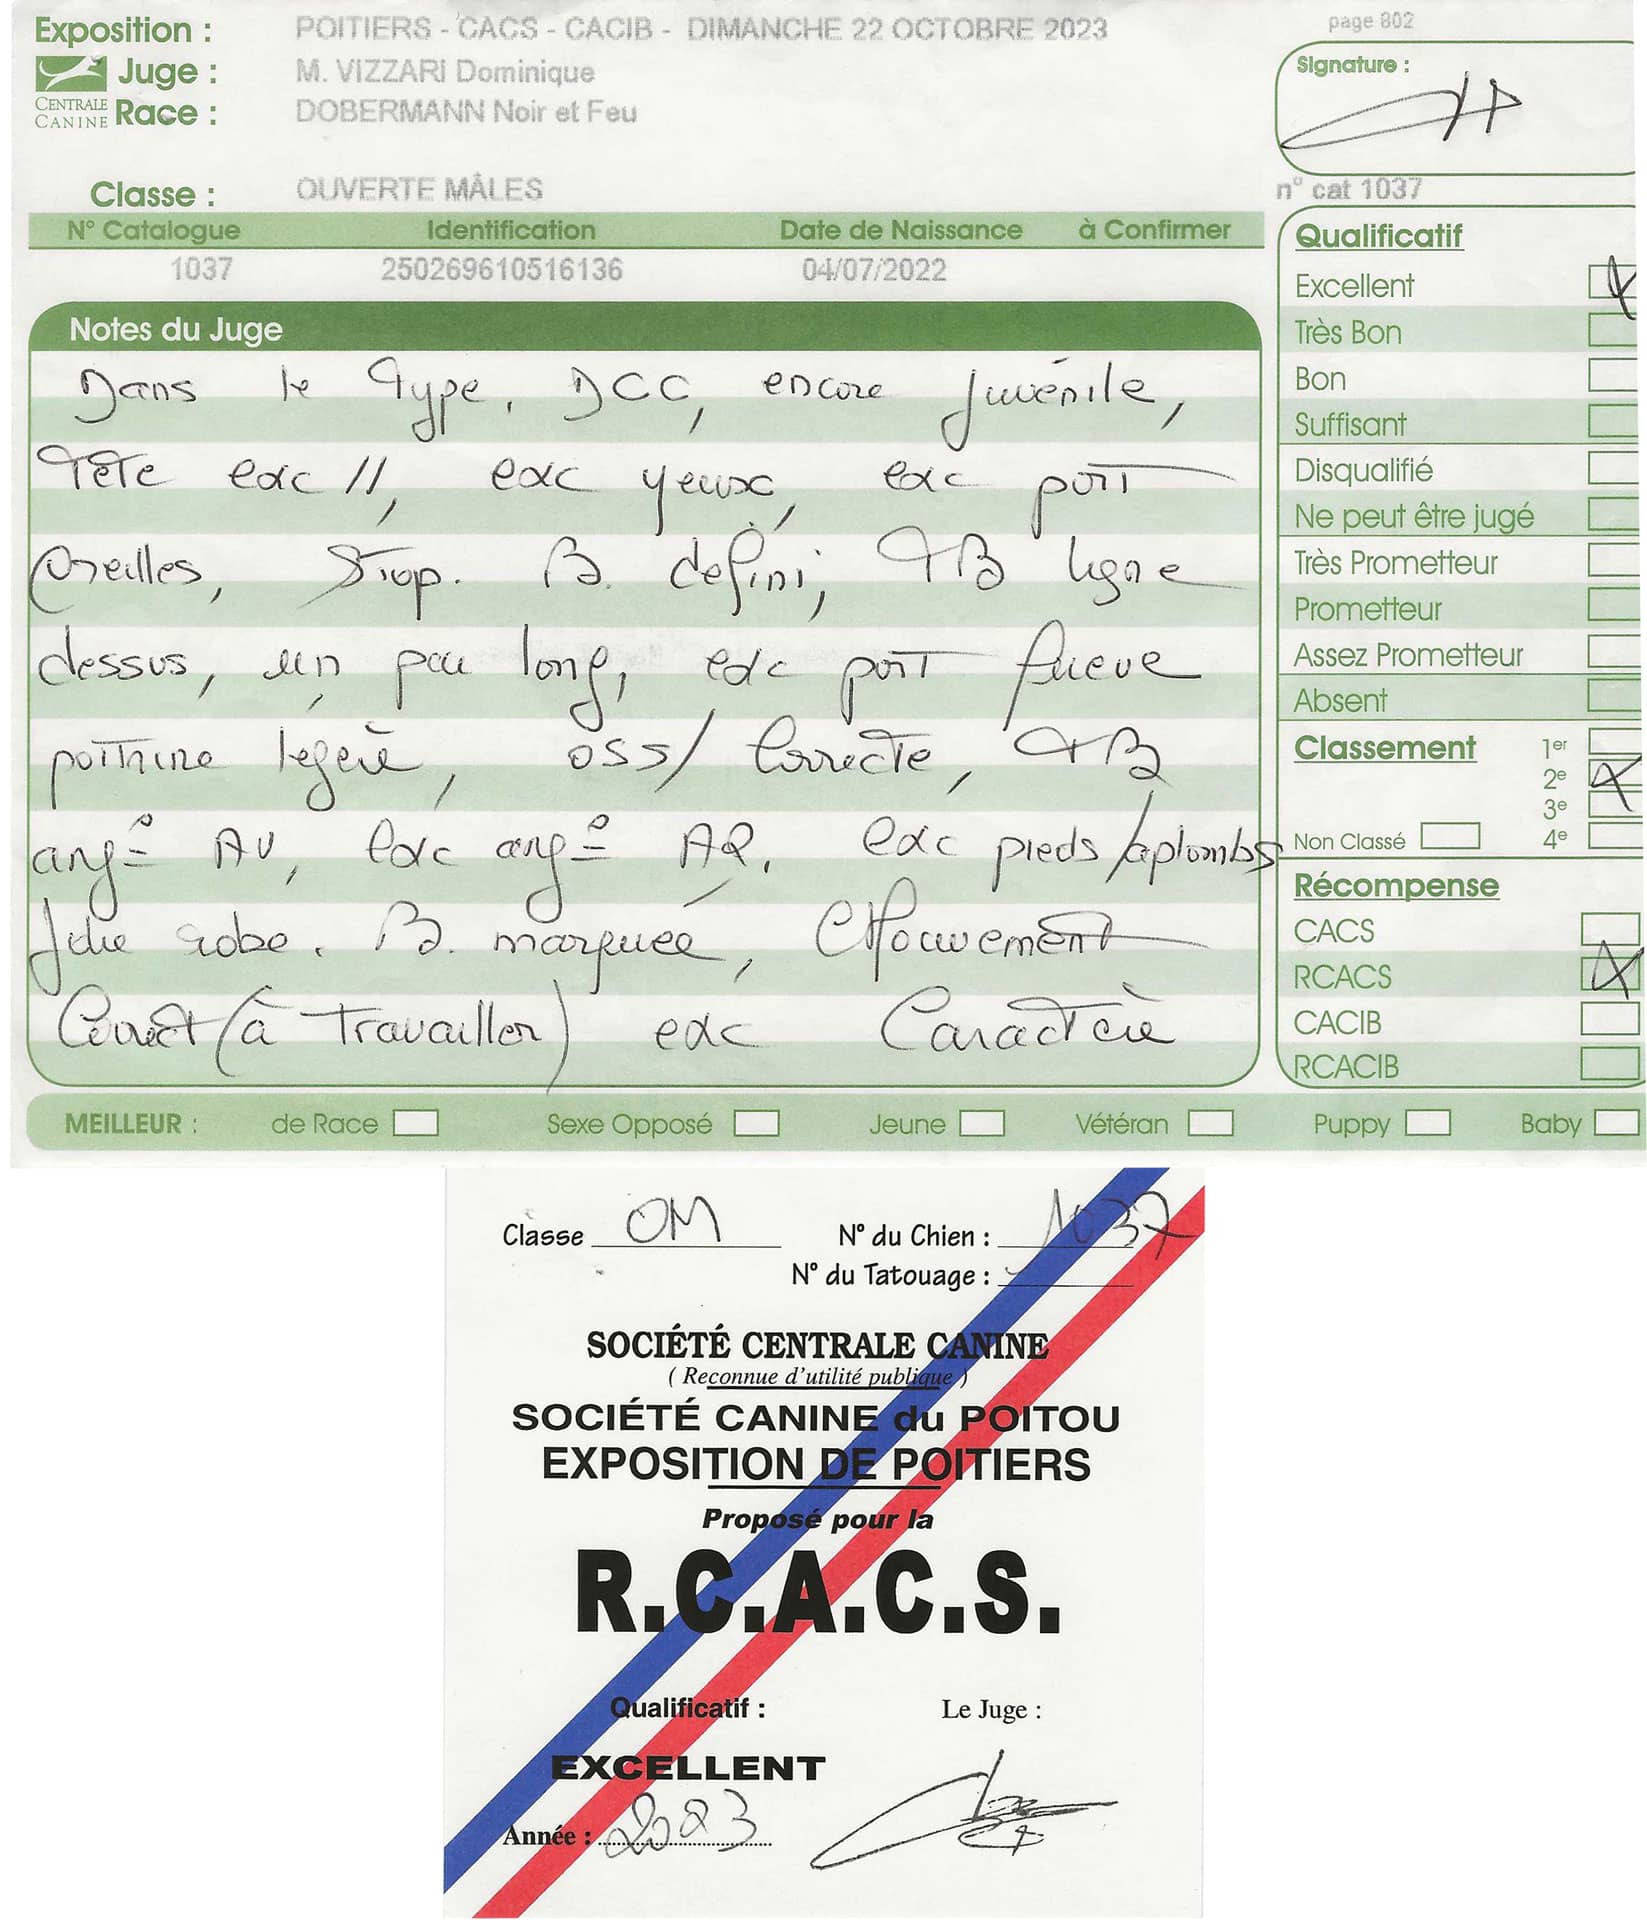 Exposition : POITIERS - CACS - CACIB - DIMANCHE 22 OCTOBRE 2023
page 802
CENTRALE CANINE
Juge : M. VIZZARI Dominique
Race : DOBERMANN Noir et Feu
Signature :
Classe : OUVERTE MÂLES
n° cat 1037
N° Catalogue Identification Date de Naissance à Confirmer
1037 250269610516136 04/07/2022
Notes du Juge
Dans le Type. DCC, encore juvénile,
Tête exc //, exc yeux, exc port
oreilles, Stop. B. defini, TB ligne
dessus, un peu long, exc port queue
poitrine légère, oss/ correcte, TB
ang=° AV, exc ang=° AR. exc pieds/aplombs
Jolie robe. B. marquée, Mouvement
Correct (à travailler) exc Caractère
Qualificatif
Excellent
Très Bon
Bon
Suffisant
Disqualifié
Ne peut être jugé
Très Prometteur
Prometteur
Assez Prometteur
Absent
Classement 1er
2e
3e
Non Classé 4e
Récompense
CACS
RCACS
CACIB
RCACIB
MEILLEUR : de Race Sexe Opposé Jeune Vétéran Puppy Baby
Classe OM N° du Chien : 1037
N° du Tatouage :
SOCIÉTÉ CENTRALE CANINE
( Reconnue d'utilité publique )
SOCIÉTÉ CANINE du POITOU
EXPOSITION DE POITIERS
Proposé pour la
R.C.A.C.S.
Qualificatif : Le Juge :
EXCELLENT
Année : 2023